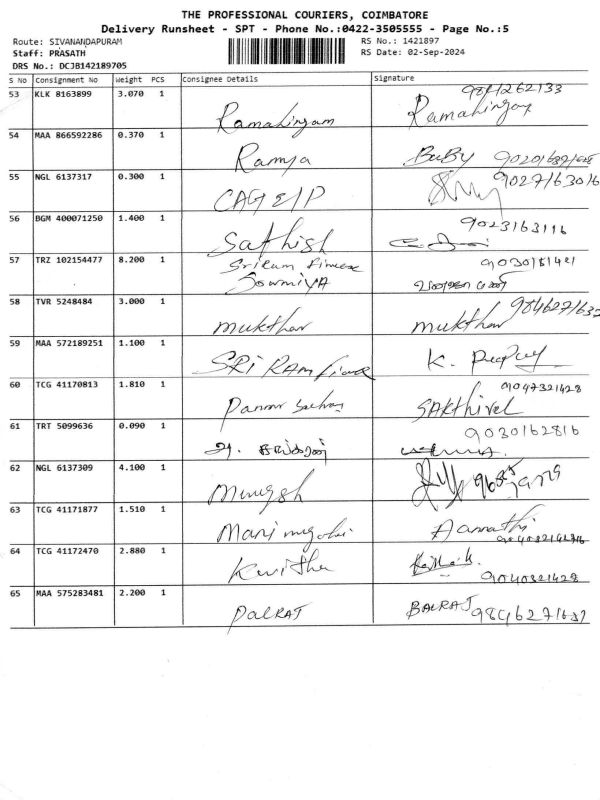 THE PROFESSIONAL COURIERS, COIMBATORE
Delivery Runsheet - SPT - Phone No.:0422-3505555 - Page No.:5
Route: SIVANANDAPURAM RS No.: 1421897
Staff: PRASATH RS Date: 02-Sep-2024
DRS No.: DCJB142189705
S No Consignment No Weight PCS Consignee Details Signature
53 KLK 8163899 3.070 1 Ramalingam Ramalingam 9841262133
54 MAA 866592286 0.370 1 Ramya BaBy
55 NGL 6137317 0.300 1 9027163016
56 BGM 400071250 1.400 1 Sathish 9023163116
57 TRZ 102154477 8.200 1 Sriram SowmiYA
58 TVR 5248484 3.000 1 mukthar mukthar
59 MAA 572189251 1.100 1 SRI RAM K.
60 TCG 41170813 1.810 1 SAKthivel 9047321428
61 TRT 5099636 0.090 1 9030162816
62 NGL 6137309 4.100 1 Murugesh
63 TCG 41171877 1.510 1
64 TCG 41172470 2.880 1 Kavitha 9040321428
65 MAA 575283481 2.200 1 BALRAJ